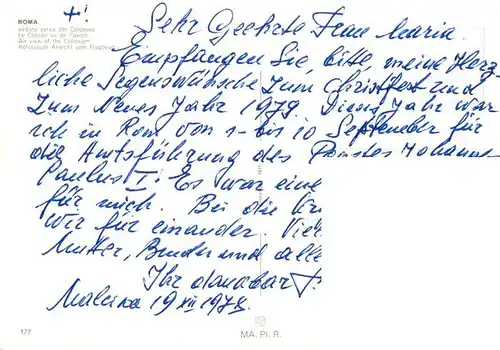 ROMA
veduta aerea del Colosseo
Le Colisée vu de l'avion
An view of the Coliseum
Kolosseum Ansicht vom Flugzeug
+!
Sehr Geehrte Frau Maria.
Empfangen Sie, bitte, meine Herz
liche Segenswünsche zum Christfest und
zum Neues Jahr 1979. Dieses Jahr war
ich in Rom von 1- bis 10 September für
die Amtsführung des Papstes Johannes
Paulus I. Es war eine
für mich. Bei die
wir für einander. Viele
Mutter, Bruder und alle
Ihr dankbar
19 XII 1978.
177
MA. PI. R.